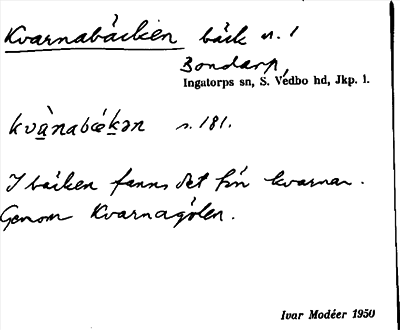 Kvarnabäcken bäck n. 1
Bondarp,
Ingatorps sn, S. Vedbo hd, Jkp. l.
kvànabækən s. 181.
I bäcken fanns det förr kvarnar.
Genom Kvarnagölen.
Ivar Modéer 1950